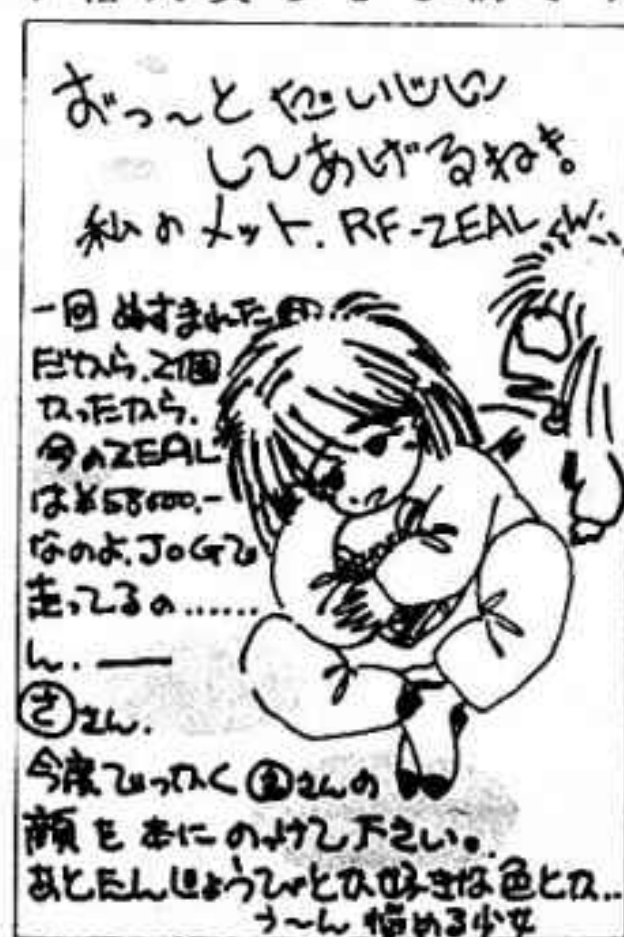 ずっ〜と だいじに
してあげるねっ。
私のメット. RF-ZEALくん.
一回 ぬすまれたの..
だから、2個
かったから.
今のZEAL
は¥58000.-
なのよ. JOGで
走ってるの……
ん. ―
さん.
今度でっかく さんの
顔を 本に のっけて下さい。
あとたんじょうびとか 好きな色とか..
う〜ん 悩める少女